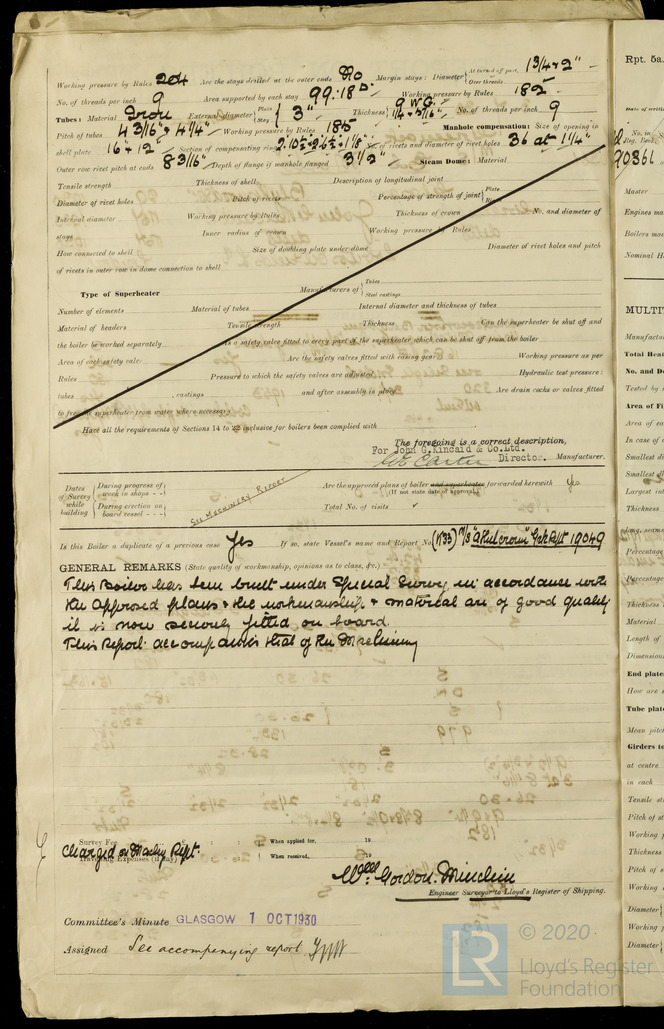 Working pressure by Rules 204 Are the stays drilled at the outer ends No Margin stays: Diameter { At turned off part, 1 3/4 + 2"
Over threads
No. of threads per inch 9 Area supported by each stay 99.18 Working pressure by Rules 182
Tubes: Material Iron External diameter { Plain Stay 3" Thickness { 9 WG. 1/4 + 5/16" No. of threads per inch 9
Pitch of tubes 4 3/16" + 4 1/4" Working pressure by Rules 185 Manhole compensation: Size of opening in
shell plate 16 + 12" Section of compensating ring No. of rivets and diameter of rivet holes 36 at 1 1/4"
Outer row rivet pitch at ends 8 3/16" Depth of flange if manhole flanged 3 1/2" Steam Dome: Material
Tensile strength Thickness of shell Description of longitudinal joint
Diameter of rivet holes Pitch of rivets Percentage of strength of joint { Plate Rivet
Internal diameter Working pressure by Rules Thickness of crown No. and diameter of
stays Inner radius of crown Working pressure by Rules
How connected to shell Size of doubling plate under dome Diameter of rivet holes and pitch
of rivets in outer row in dome connection to shell
Type of Superheater Manufacturers of { Tubes Steel castings
Number of elements Material of tubes Internal diameter and thickness of tubes
Material of headers Tensile strength Thickness Can the superheater be shut off and
the boiler be worked separately Is a safety valve fitted to every part of the superheater which can be shut off from the boiler
Area of each safety valve Are the safety valves fitted with easing gear Working pressure as per
Rules Pressure to which the safety valves are adjusted Hydraulic test pressure:
tubes , castings and after assembly in place Are drain cocks or valves fitted
to free the superheater from water where necessary
Have all the requirements of Sections 14 to 22 inclusive for boilers been complied with
The foregoing is a correct description,
For John G. Kincaid & Co. Ltd.
Carter Director. Manufacturer.
Dates of Survey while building { During progress of work in shops - - During erection on board vessel - - - } See Machinery Report
Are the approved plans of boiler and superheater forwarded herewith Yes
(If not state date of approval.)
Total No. of visits
Is this Boiler a duplicate of a previous case Yes If so, state Vessel's name and Report No. (1733) Gck Rpt 19049
GENERAL REMARKS (State quality of workmanship, opinions as to class, &c.)
This Boiler has been built under Special Survey in accordance with
the approved plans & the workmanship & material are of good quality
it is now securely fitted on board.
This Report accompanies that of the Machinery
Survey Fee When applied for, 19
Charged on Machy Rpt.
Travelling Expenses (if any) When received, 19
Wm. Gordon
Engineer Surveyor to Lloyd's Register of Shipping.
Committee's Minute GLASGOW 1 OCT 1930
Assigned See accompanying report
© 2020
LR
Lloyd's Register
Foundation
Rpt. 5a.
No. in
Reg. Book.
90361
Master
Engines ma
Boilers ma
Nominal H
MULTI
Manufactu
Total Heat
No. and De
Tested by
Area of Fi
Area of ea
In case of
Smallest di
Smallest di
Largest int
Thickness
long. seams
Percentage
Percentage
Percentage
Thickness
Material
Length of
Dimensions
End plate
How are s
Tube plat
Mean pitch
Girders to
at centre
in each
Tensile st
Pitch of st
Working p
Thickness
Pitch of s
Working
Diameter
Working
Diameter